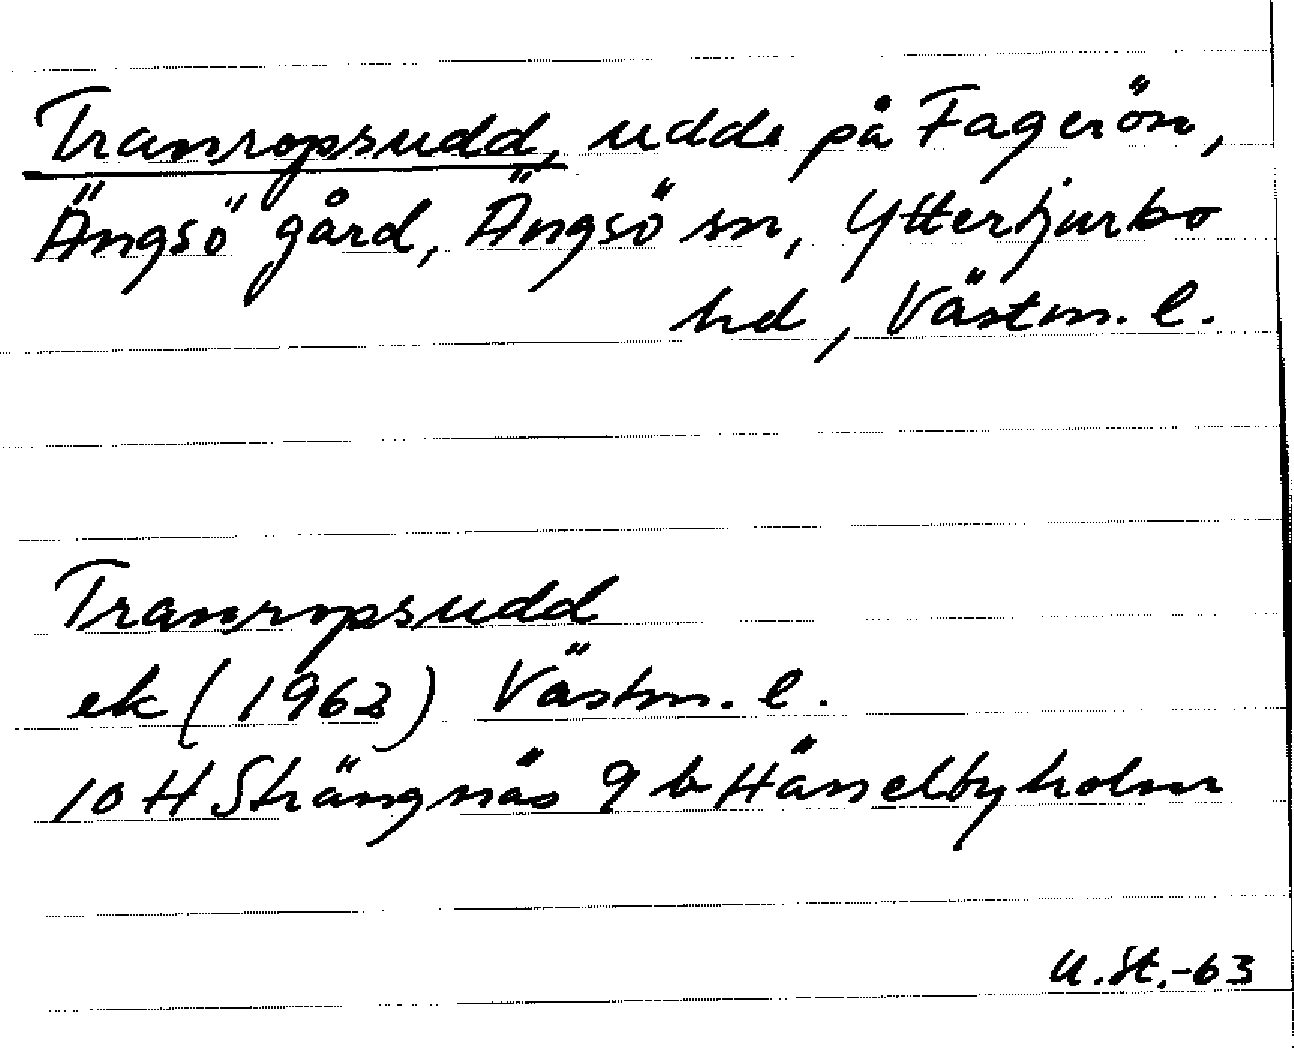 Tranropsudd, udde på Fagerön,
Ängsö gård, Ängsö sn, Yttertjurbo
hd, Västm. l.
Tranropsudd
ek (1962) Västm. l.
10 H Strängnäs 9 b Hässelbyholm
U.St.-63